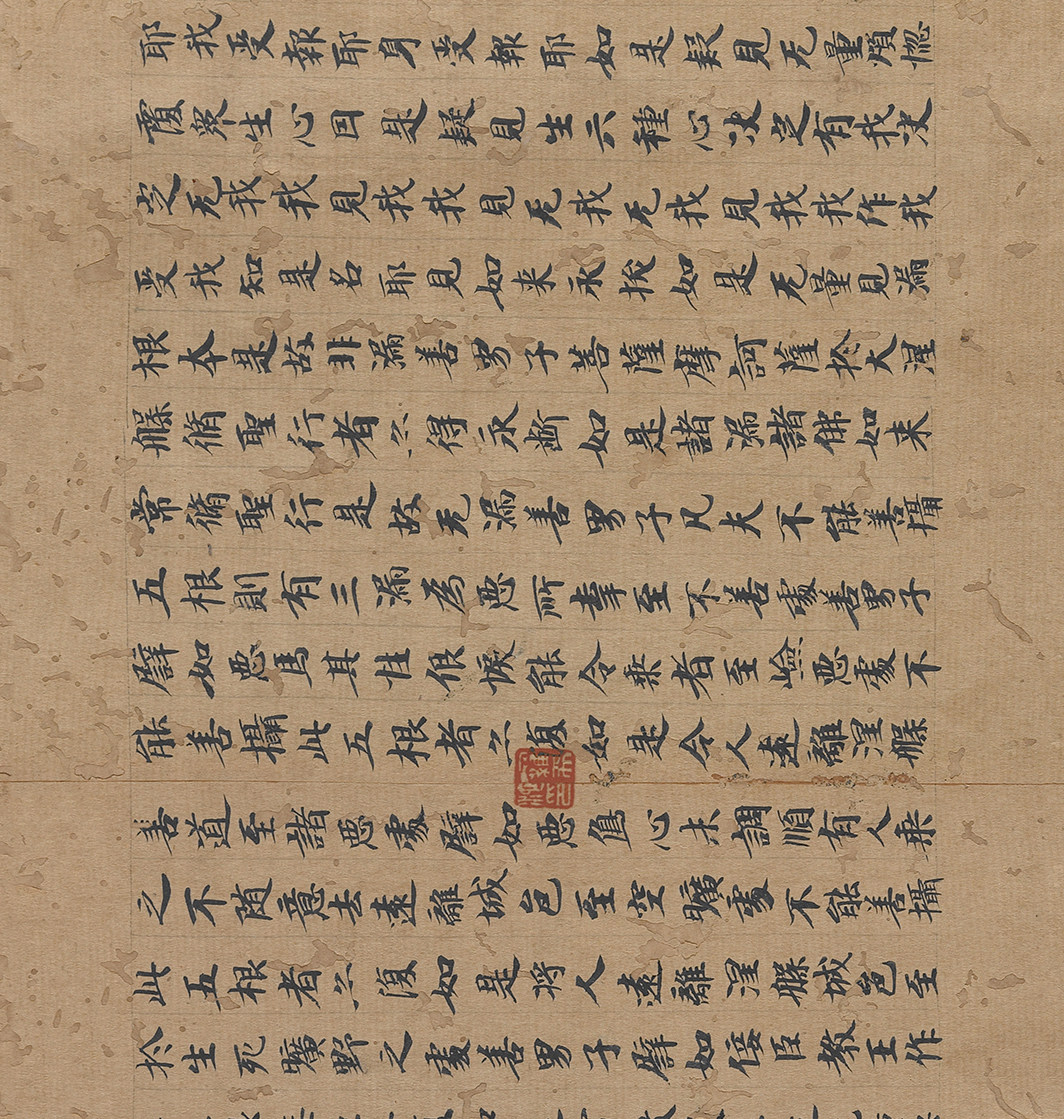 耶我受報耶身受報耶如是疑見无量煩惱
覆衆生心因是疑見生六種心决定有我决
定无我我見我我見无我无我見我我作我
受我知是名耶見如来永拔如是无量見漏
根本是故非漏善男子菩薩摩訶薩於大涅
槃脩聖行者亦得永斷如是諸漏諸佛如来
常脩聖行是故无漏善男子凡夫不能善攝
五根則有三漏為惡所牽至不善處善男子
譬如惡馬其性佷悷能令乗者至嶮惡處不
能善攝此五根者亦復如是令人遠離涅槃
善道至諸惡處譬如惡象心未調順有人乗
之不随意去遠離城邑至空曠處不能善攝
此五根者亦復如是将人遠離涅槃城邑至
於生死曠野之處善男子譬如佞臣教王作